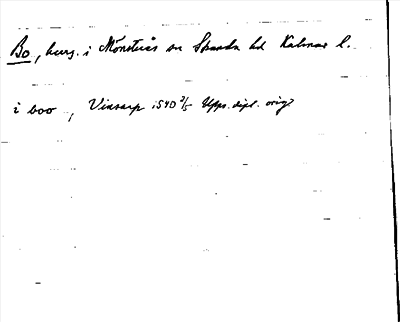 Bo, herg. i Mönsterås sn Stranda hd Kalmar l.
i boo, Vinsarp 1540 3/5 Upps. dipl. orig